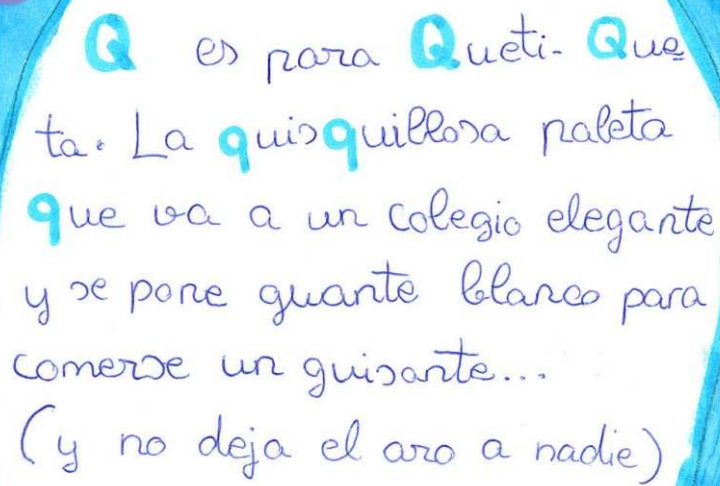 Q es para Queti-Que
ta. La quisquillosa paleta
que va a un colegio elegante
y se pone guante blanco para
comerse un guisante...
(y no deja el aro a nadie)